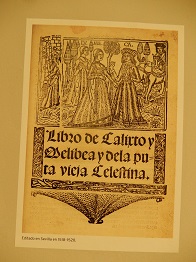 Libro de Calixto y
Melibea y dela pu-
ta vieja Celestina.
Editado en Sevilla en 1518-1520.